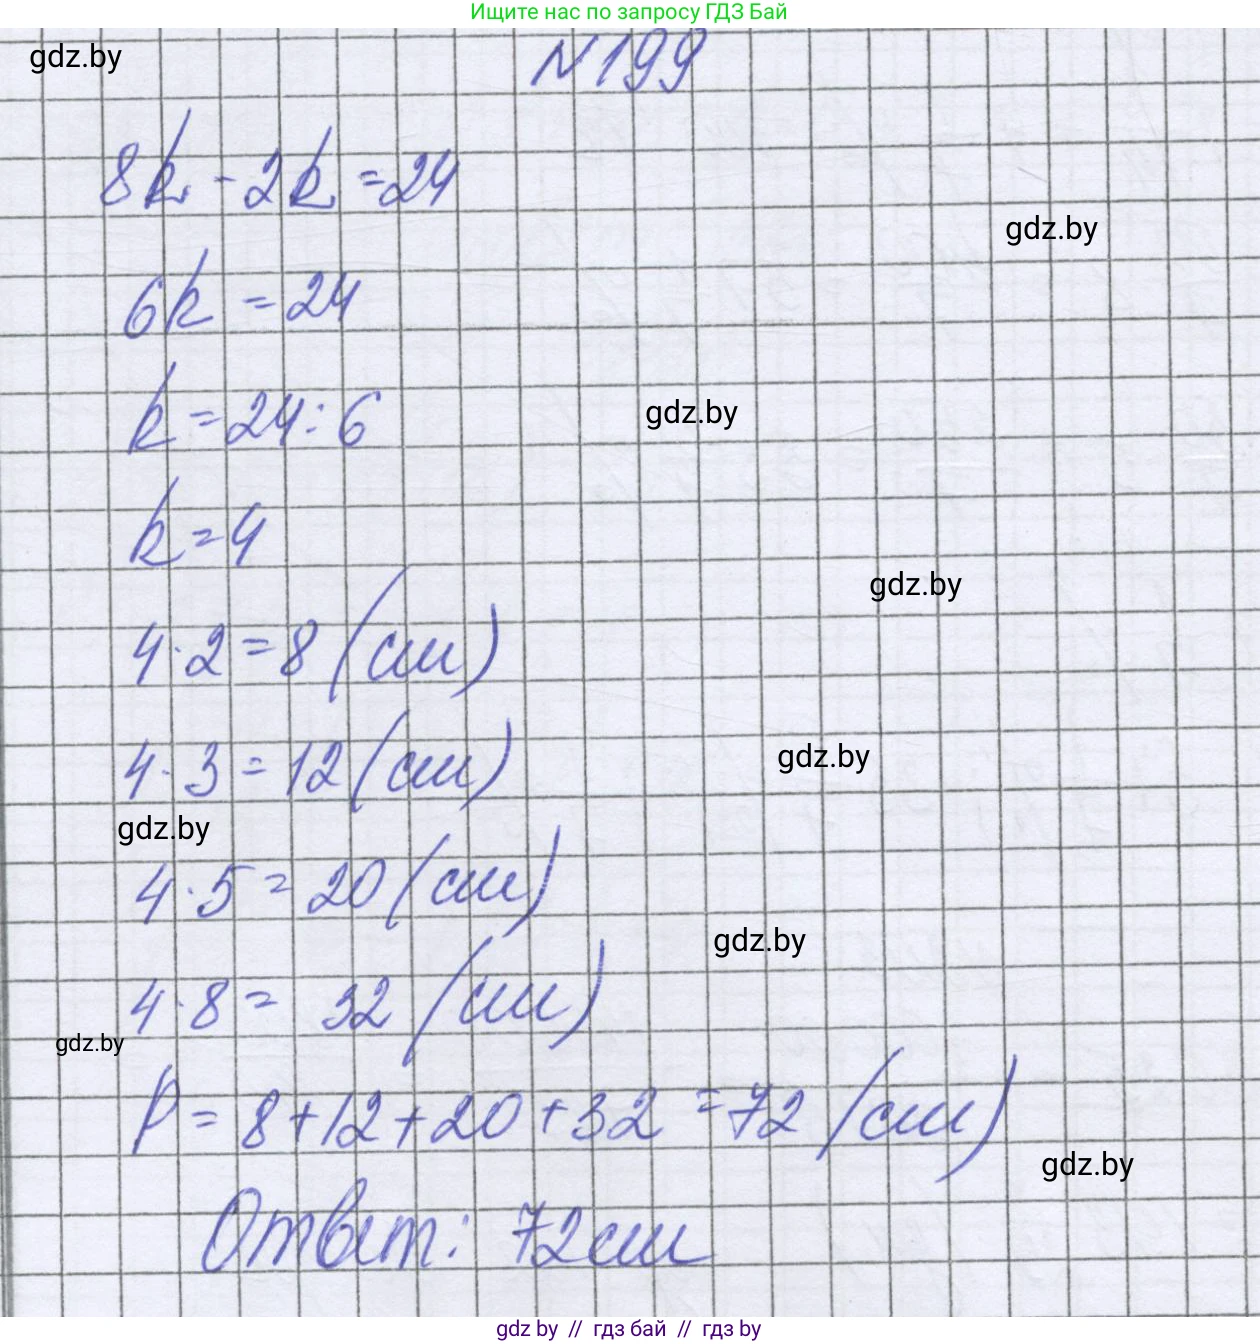 Ищите нас по запросу ГДЗ Бай
gdz.by
N199
8k - 2k = 24
gdz.by
6k = 24
k = 24 : 6
gdz.by
k = 4
gdz.by
4 · 2 = 8 (см)
4 · 3 = 12 (см)
gdz.by
gdz.by
4 · 5 = 20 (см)
gdz.by
4 · 8 = 32 (см)
gdz.by
P = 8 + 12 + 20 + 32 = 72 (см)
gdz.by
Ответ: 72см
gdz.by // гдз бай // гдз by